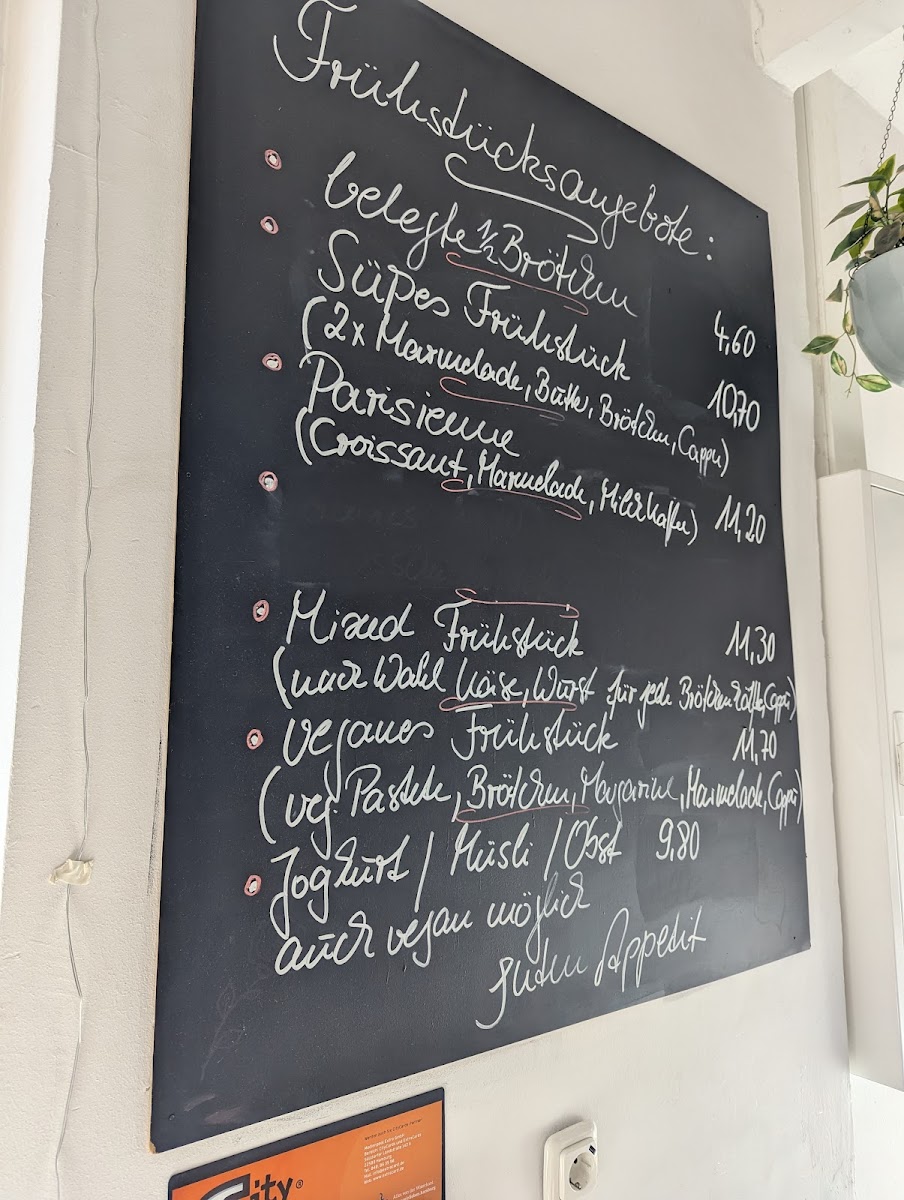 Frühstücksangebote:
belegte 1/2 Brötchen 4,60
Süßes Frühstück 10,70
(2x Marmelade, Butter, Brötchen, Cappu)
Parisienne
(Croissant, Marmelade, Milchkaffee) 11,20
Mixed Frühstück 11,30
(nach Wahl Käse, Wurst für jede Brötchenhälfte, Cappu)
veganes Frühstück 11,70
(veg. Pastete, Brötchen, Magarine, Marmelade, Cappu)
Joghurt / Müsli / Obst 9,80
auch vegan möglich
guten Appetit
City®